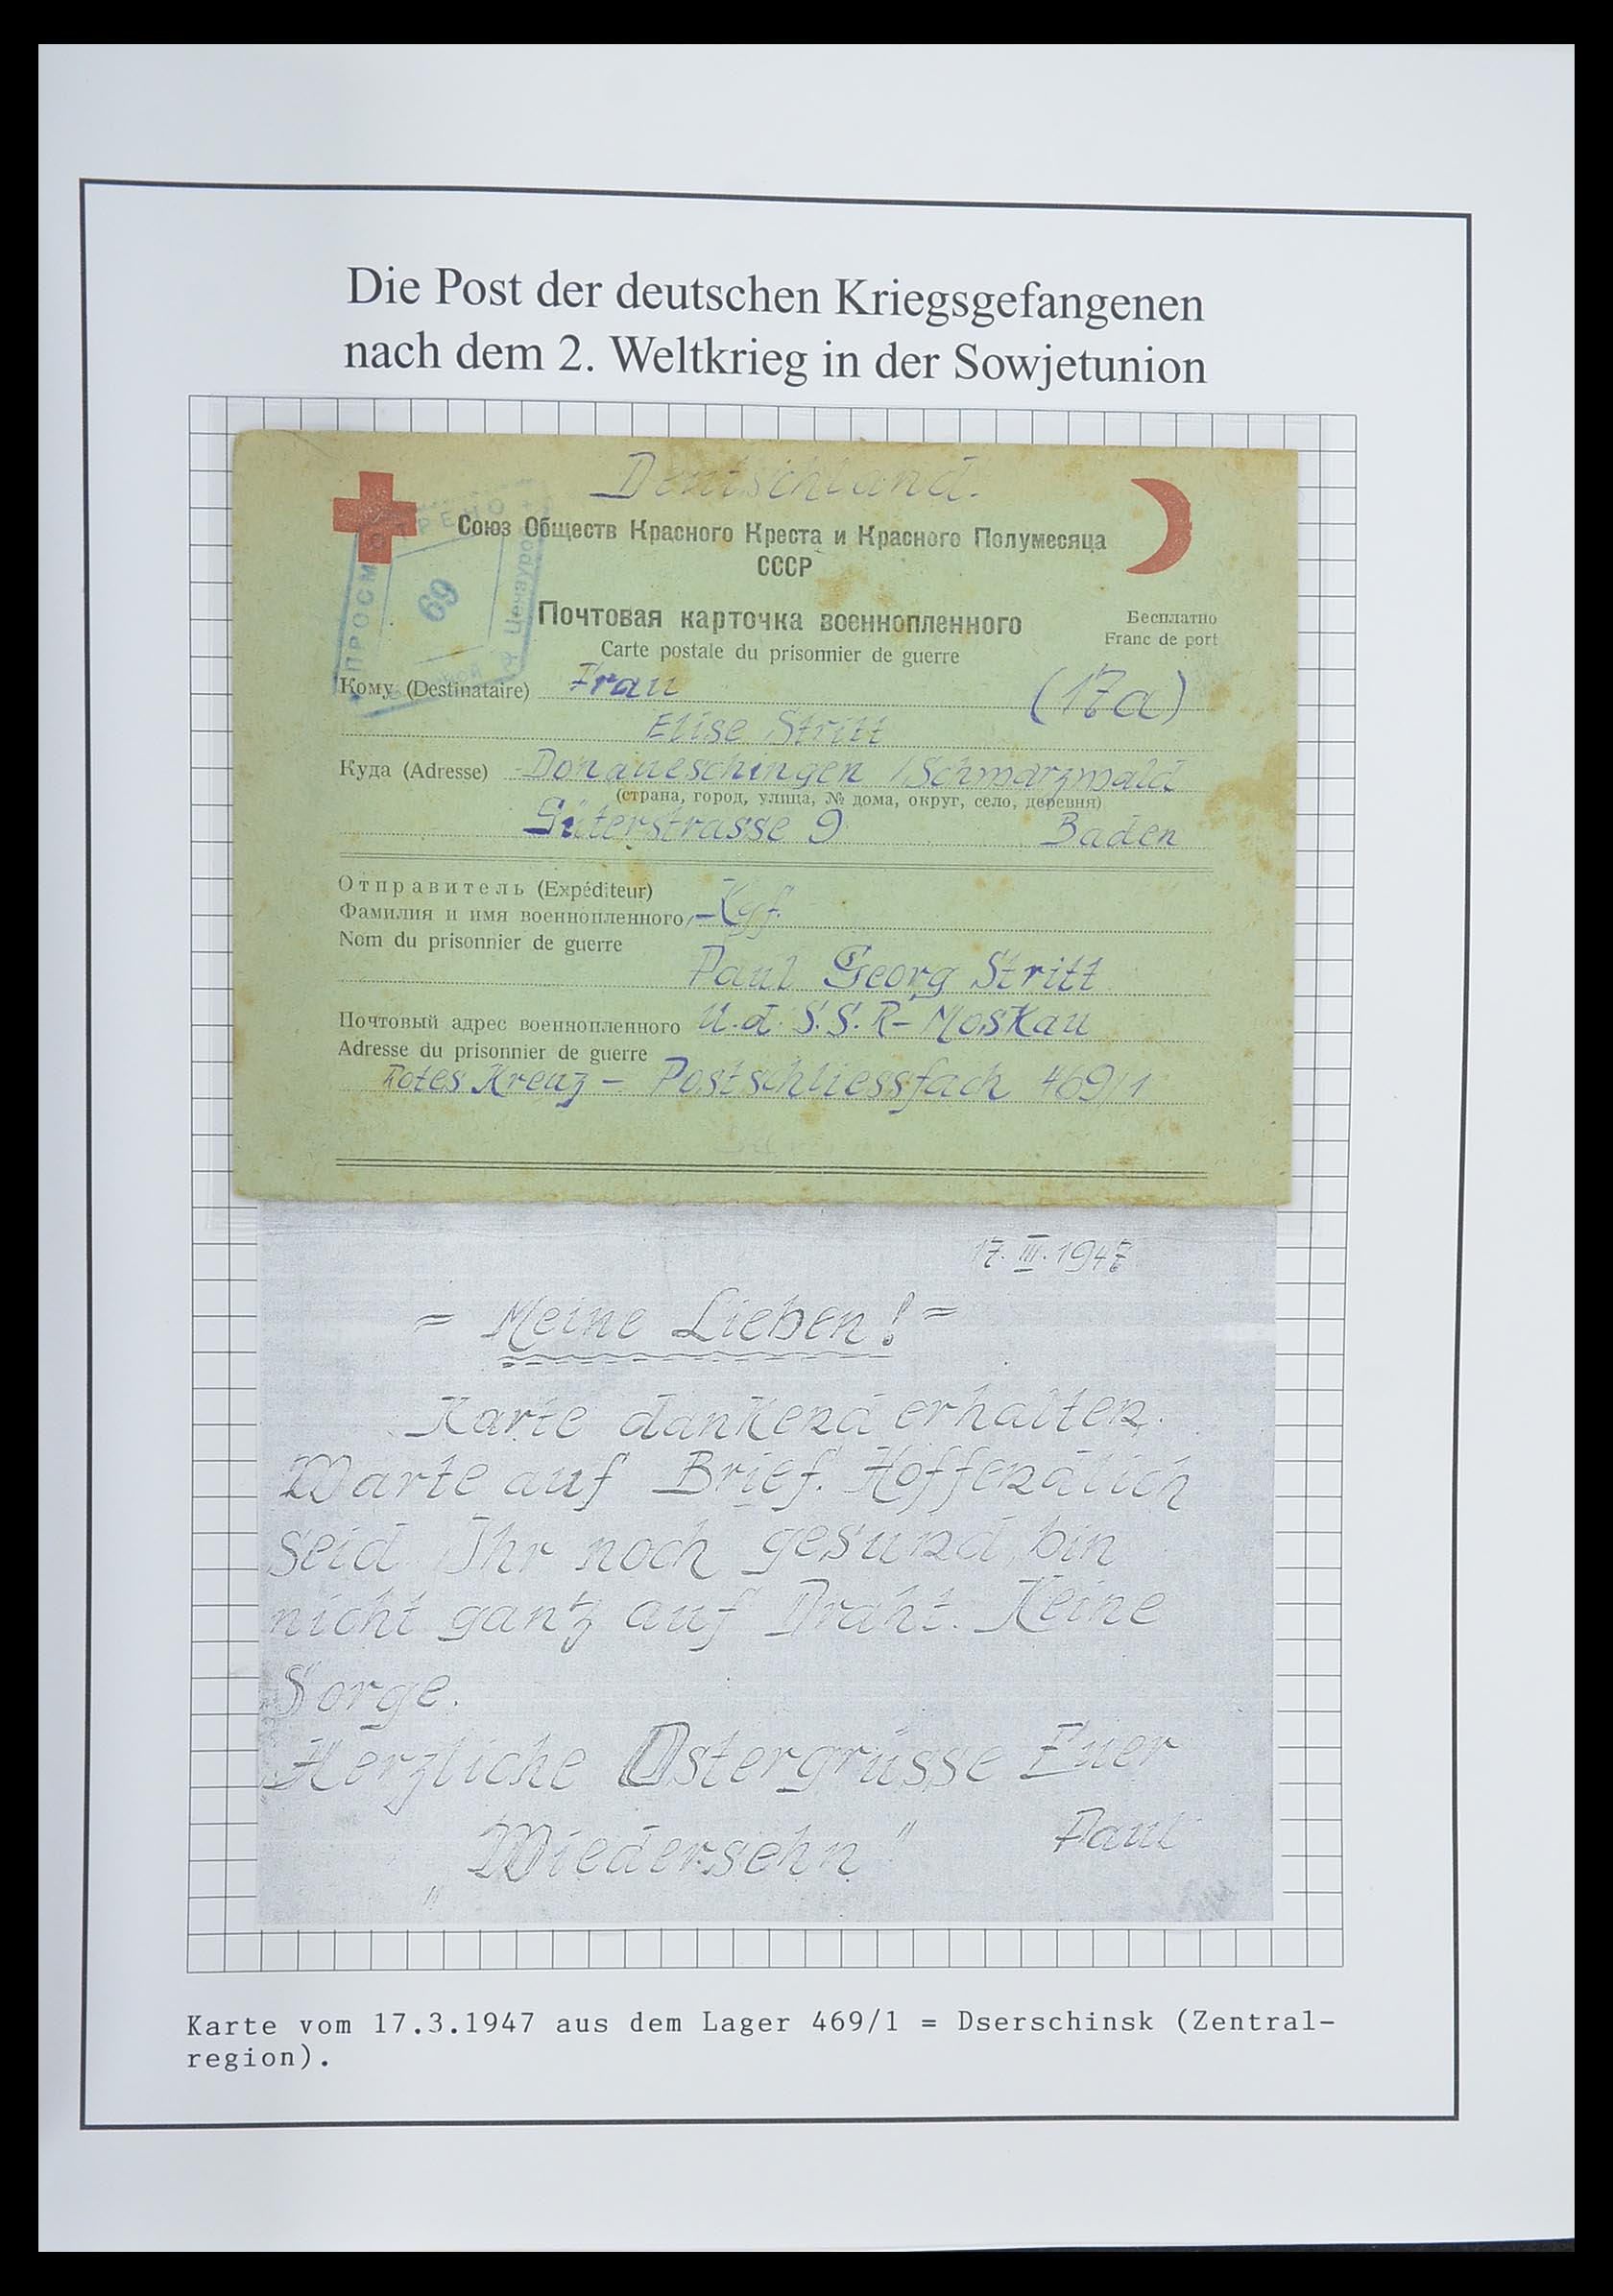 Die Post der deutschen Kriegsgefangenen
nach dem 2. Weltkrieg in der Sowjetunion
Deutschland.
Союз Обществ Красного Креста и Красного Полумесяца
СССР
ПРОСМОТРЕНО
69
Цензурой
Почтовая карточка военнопленного
Carte postale du prisonnier de guerre
Бесплатно
Franc de port
Кому (Destinataire) Frau (17a)
Elise Stritt
Куда (Adresse) Donaueschingen / Schwarzwald
(страна, город, улица, № дома, округ, село, деревня)
Güterstrasse 9 Baden
Отправитель (Expéditeur)
Фамилия и имя военнопленного Kgf.
Nom du prisonnier de guerre
Paul Georg Stritt
Почтовый адрес военнопленного U.d.S.S.R - Moskau
Adresse du prisonnier de guerre
Rotes Kreuz - Postschliessfach 469/1
17. III. 1947
= Meine Lieben! =
Karte dankend erhalten.
Warte auf Brief. Hoffendlich
seid Ihr noch gesund, bin
nicht gantz auf Draht. Keine
Sorge.
Herzliche Ostergrüsse Euer
„Wiedersehn" Paul
Karte vom 17.3.1947 aus dem Lager 469/1 = Dserschinsk (Zentral-
region).